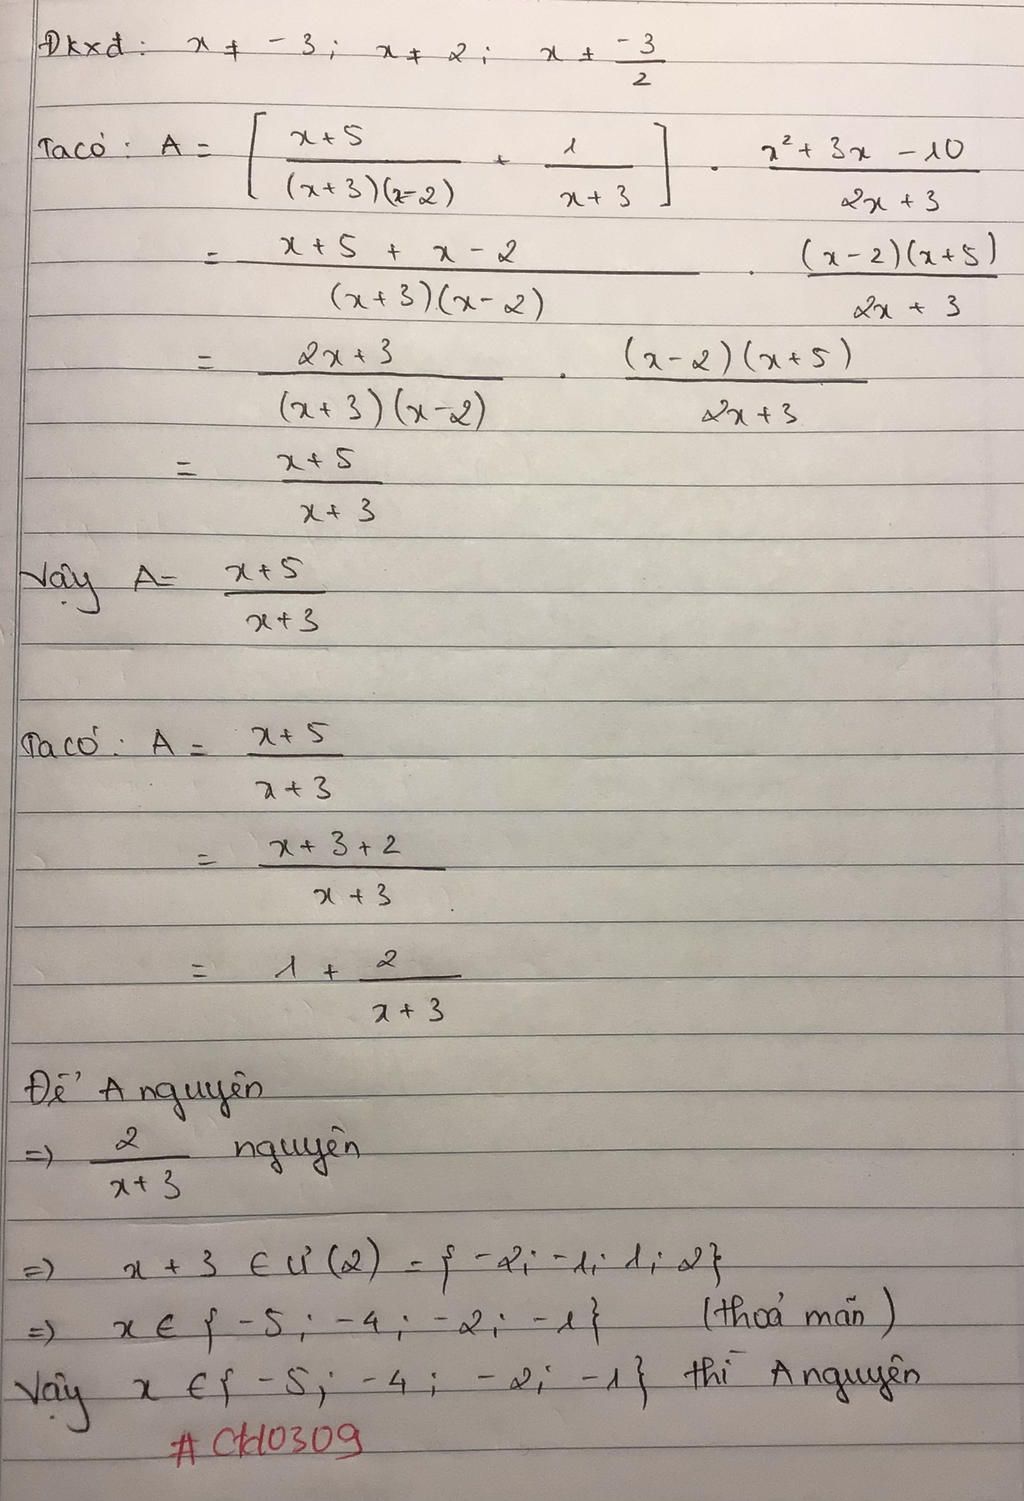 Đkxđ: x ≠ -3; x ≠ 2; x ≠ -3/2
Ta có: A = [ (x+5)/((x+3)(x-2)) + 1/(x+3) ] . (x² + 3x - 10)/(2x+3)
= (x+5 + x-2)/((x+3)(x-2)) . ((x-2)(x+5))/(2x+3)
= (2x+3)/((x+3)(x-2)) . ((x-2)(x+5))/(2x+3)
= (x+5)/(x+3)
Vậy A= (x+5)/(x+3)
Ta có: A = (x+5)/(x+3)
= (x+3+2)/(x+3)
= 1 + 2/(x+3)
Để A nguyên
=> 2/(x+3) nguyên
=> x+3 ∈ Ư(2) = {-2; -1; 1; 2}
=> x ∈ {-5; -4; -2; -1} (thoả mãn)
Vậy x ∈ {-5; -4; -2; -1} thì A nguyên
#CH0309